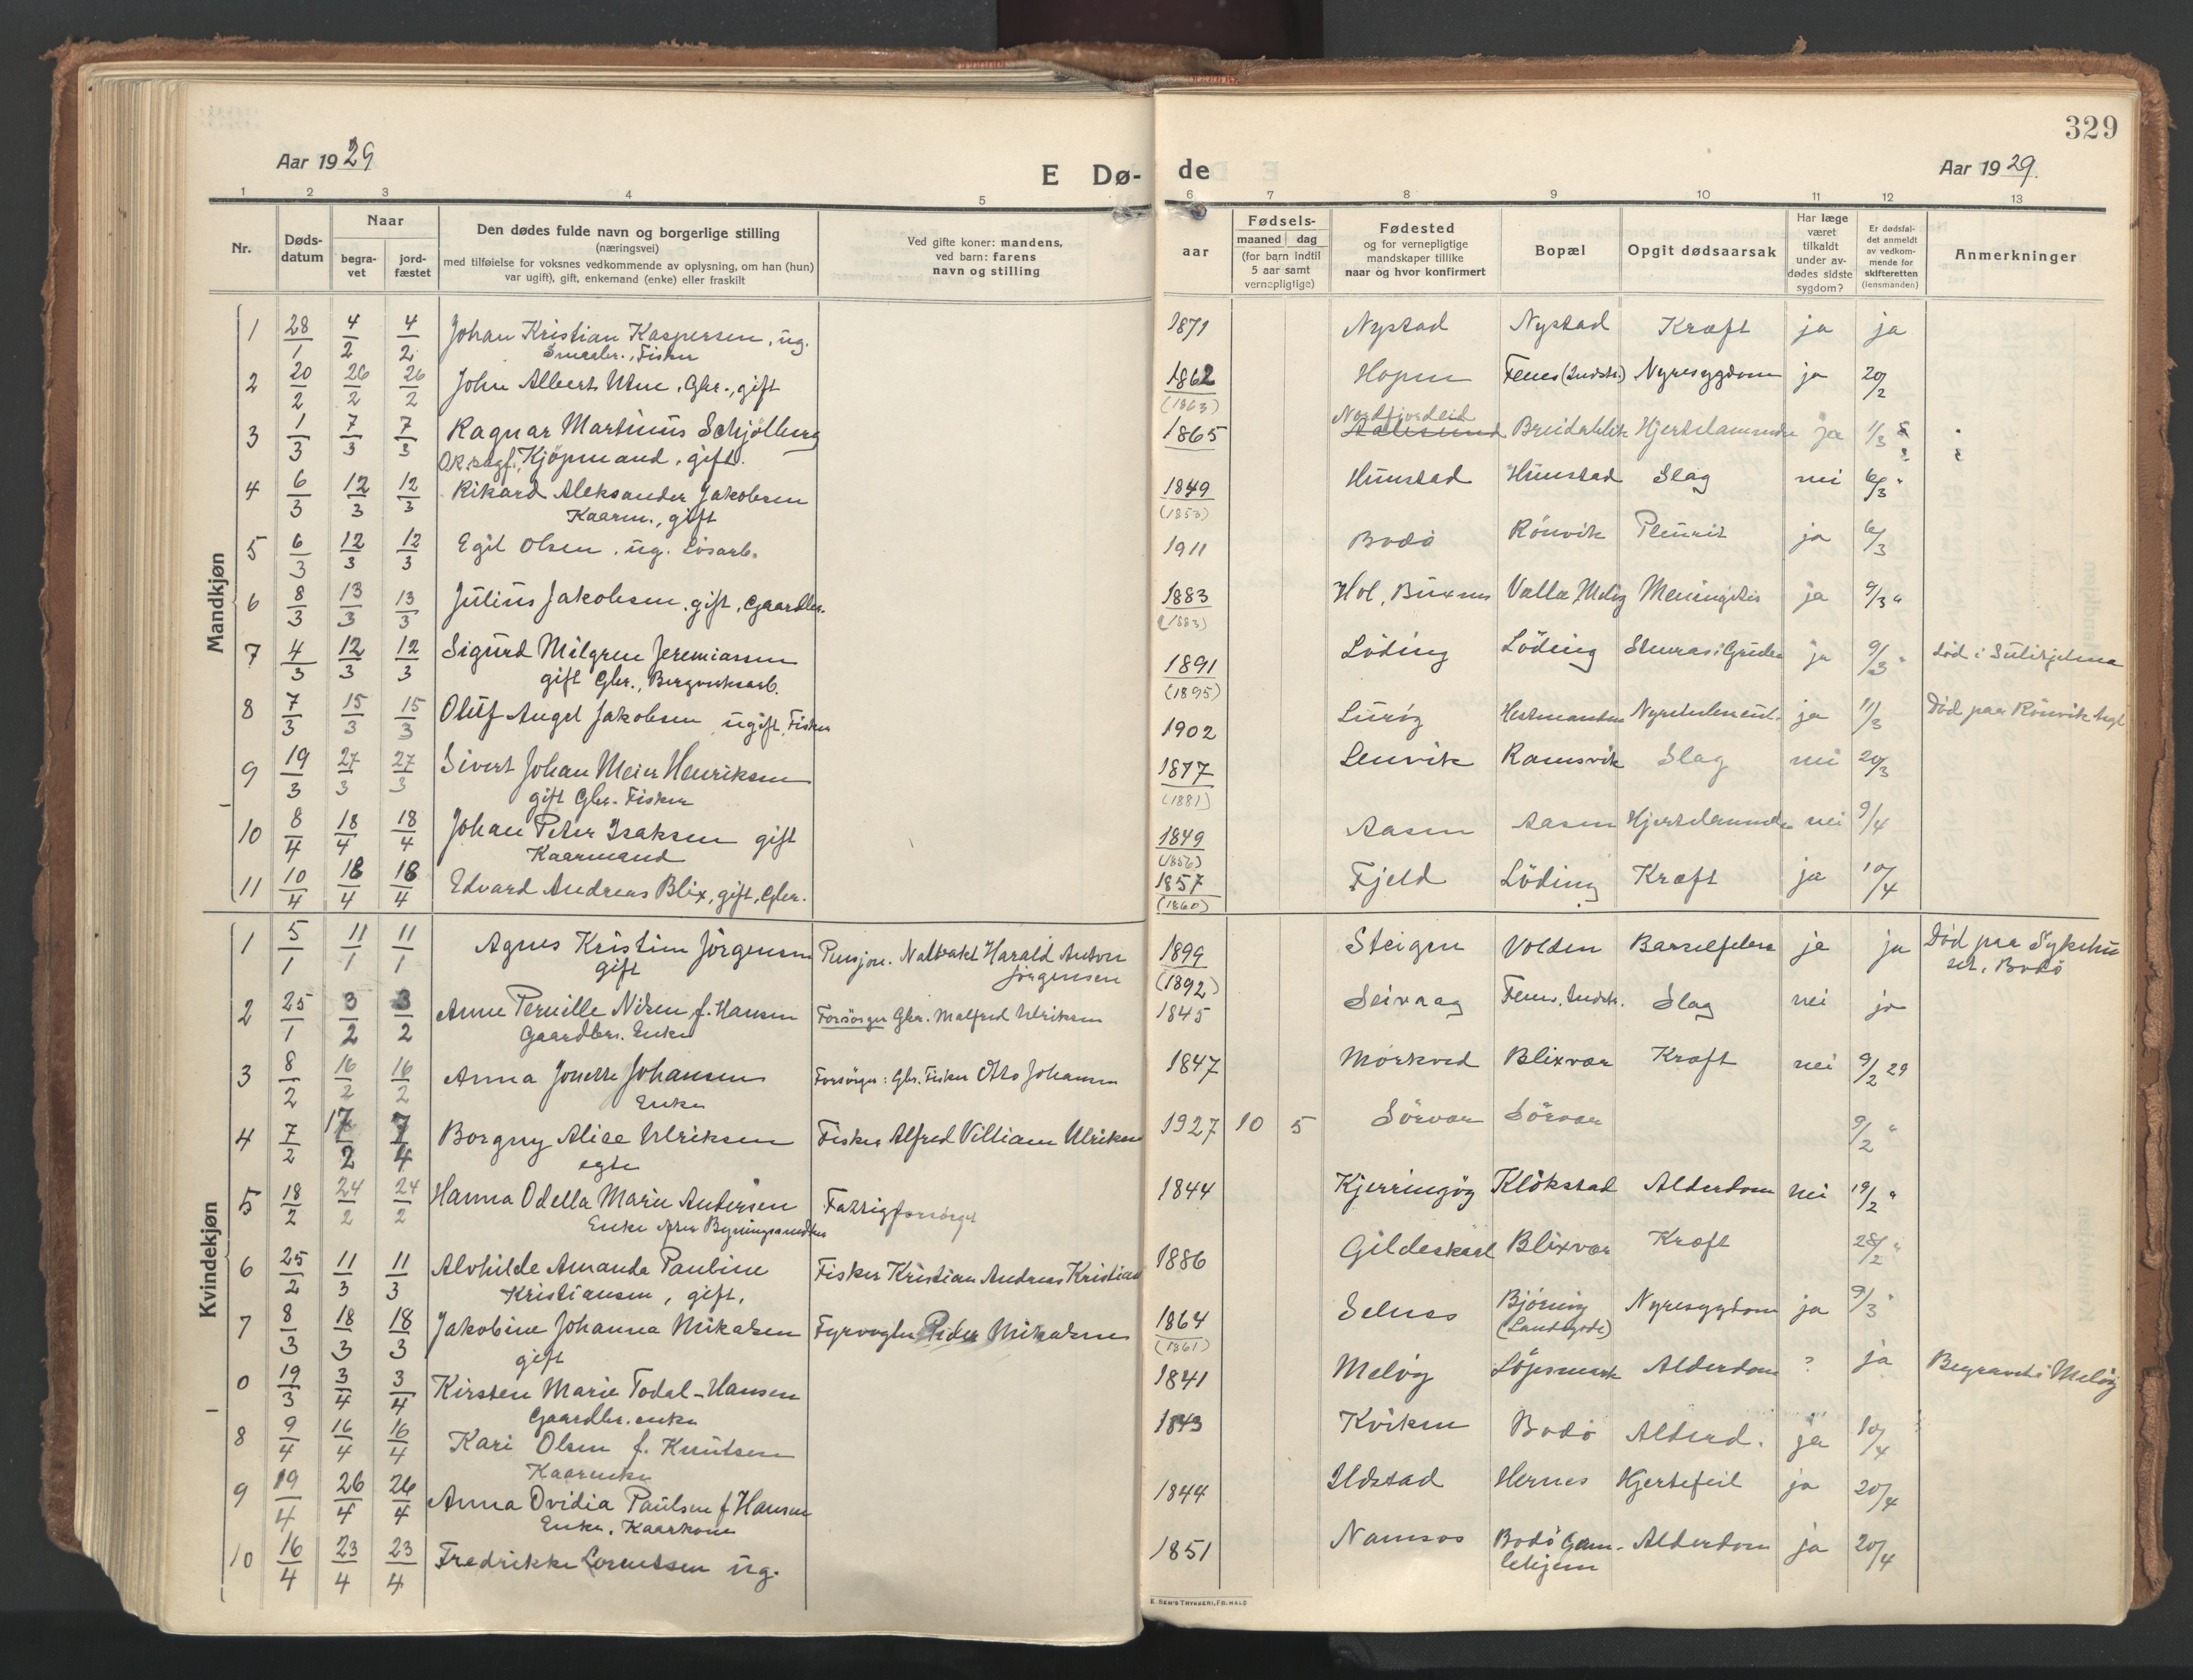 329
Aar 1929
E Dø-
de
Aar 1929.
1 2 3 4 5 6 7 8 9 10 11 12 13
Nr.
Døds-
datum
Naar
begra-
vet
jord-
fæstet
Den dødes fulde navn og borgerlige stilling
(næringsvei)
med tilføielse for voksnes vedkommende av oplysning, om han (hun)
var ugift), gift, enkemand (enke) eller fraskilt
Ved gifte koner: mandens,
ved barn: farens
navn og stilling
aar
Fødsels-
maaned dag
(for barn indtil
5 aar samt
vernepligtige)
Fødested
og for vernepligtige
mandskaper tillike
naar og hvor konfirmert
Bopæl
Opgit dødsaarsak
Har læge
været
tilkaldt
under av-
dødes sidste
sygdom?
Er dødsfal-
det anmeldt
av vedkom-
mende for
skifteretten
(lensmanden)
Anmerkninger
Mandkjøn
1 28/1 4/2 4/2 Johan Kristian Kaspersen, ug. 1871 Nystad Nystad Kræft ja ja
Smaabr., Fisker
2 20/2 26/2 26/2 John Albert Utne, Gbr., gift 1862 Hopen Fenes (Indstr.) Nyresygdom ja 20/2
(1863)
3 1/3 7/3 7/3 Ragnar Martinus Schjølberg 1865 Nordfjordeid Aalesund Breidablik Hjertelammelse ja 1/3
O.R.sagf., Kjöpmand, gift.
4 6/3 12/3 12/3 Rikard Aleksander Jakobsen 1849 Hunstad Hunstad Slag nei 6/3 "
Kaarm., gift (1853)
5 6/3 12/3 12/3 Egil Olsen, ug. Løsarb. 1911 Bodö Rönvik Pleurit ja 6/3
6 8/3 13/3 13/3 Julius Jakobsen, gift, Gaardbr. 1883 Hol, Buksnes Valla, Meløy Meningitis ja 9/3 "
(1883)
7 4/3 12/3 12/3 Sigurd Milgren Jeremiassen 1891 Löding Löding Stenras i Gruben ja 9/3 " död i Sulitjelma
gift Gbr., Bergverksarb. (1895)
8 7/3 15/3 15/3 Oluf Angel Jakobsen, ugift, Fisker 1902 Luröy Hestmanden ja 11/3 Död paa Rönvik Asyl
9 19/3 27/3 27/3 Sivert Johan Meier Henriksen 1877 Lenvik Ramsvik Slag nei 20/3
gift Gbr. Fisker (1881)
10 8/4 18/4 18/4 Johan Peter Isaksen gift 1849 Aasen Aasen Hjertelammelse nei 9/4
Kaarmand (1856)
11 10/4 18/4 18/4 Edvard Andreas Blix, gift, Gbr. 1857 Fjeld Löding Kræft ja 10/4
(1860)
Kvindekjøn
1 5/1 11/1 11/1 Agnes Kristine Jörgensen Pensjon. Nattvakt Harald Anton 1899 Steigen Volden Barselfeber ja ja Död paa Sykehu
gift Jörgensen (1892) set, Bodö
2 25/1 3/2 3/2 Anne Pernille Nilsen f. Hansen Forsörger Gbr. Malfred Ulriksen 1845 Seivaag Fenes, Indstr. Slag nei ja
Gaardbrs. Enke
3 8/2 16/2 16/2 Anna Jonette Johansen Forsörger: Gbr. Fisker Otto Johansen 1847 Mörkved Blixvær Kræft nei 9/2 29
Enke
4 7/2 17/2 7/4 Borgny Alice Ulriksen Fisker Alfred Villiam Ulriksen 1927 10 5 Sörvær Sörvær 9/2 "
egte
5 18/2 24/2 24/2 Hanna Odella Marie Andersen Fattigforsörget 1844 Kjerringöy Klökstad Alderdom nei 19/2 "
Enke efter
6 25/2 11/3 11/3 Alvhilde Amanda Pauline Fisker Kristian Andreas Kristian 1886 Gildeskaal Blixvær Kræft 28/2 "
Kristiansen, gift,
7 8/3 18/3 18/3 Jakobine Johanna Mikalsen Fyrvogter Peder Mikalsen 1864 Selnes Björing Nyresygdom ja 9/3 "
gift (1861) (Landegode)
0 19/3 3/4 3/4 Kirsten Marie Todal-Hansen 1841 Melöy Löpsmark Alderdom ? ja Begravet i Melöy
Gaardbr. enke
8 9/4 16/4 16/4 Kari Olsen f. Knutsen 1843 Kviken Bodö Alderd. ja 10/4
Kaarenke
9 19/4 26/4 26/4 Anna Ovidia Paulsen f Hansen 1844 Ildstad Hernes Hjertefeil ja 20/4
Enke, Kaarkone
10 16/4 23/4 23/4 Fredrikke Lorentsen ug. 1851 Namsos Bodö Gam- Alderdom ja 20/4
lehjem
E. SEM'S TRYKKERI, FR.HALD